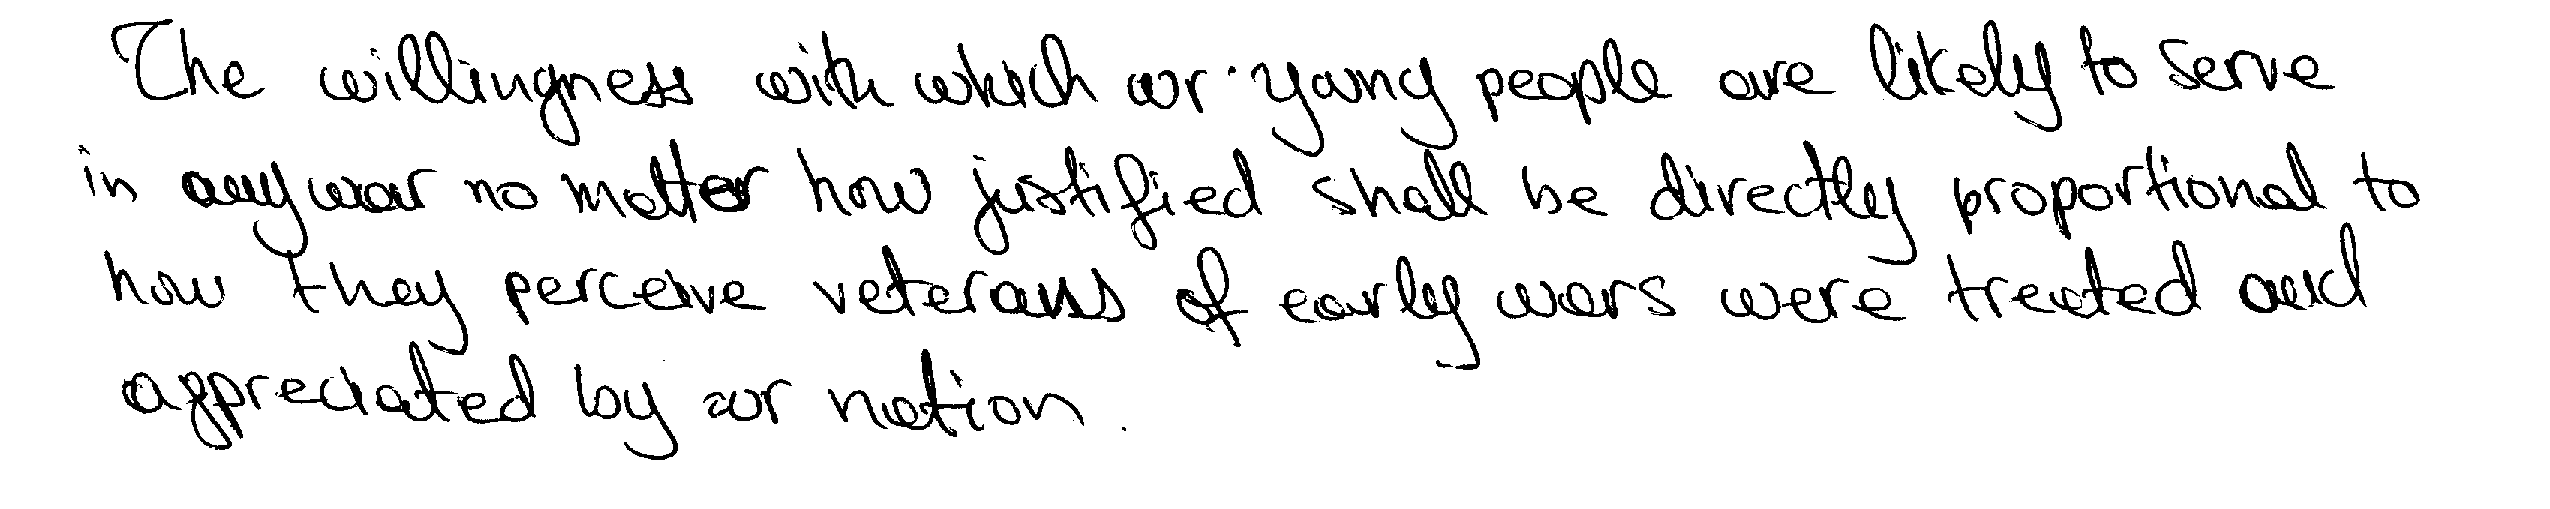 The willingness with which our young people are likely to serve
in any war no matter how justified shall be directly proportional to
how they perceive veterans of early wars were treated and
appreciated by our nation.